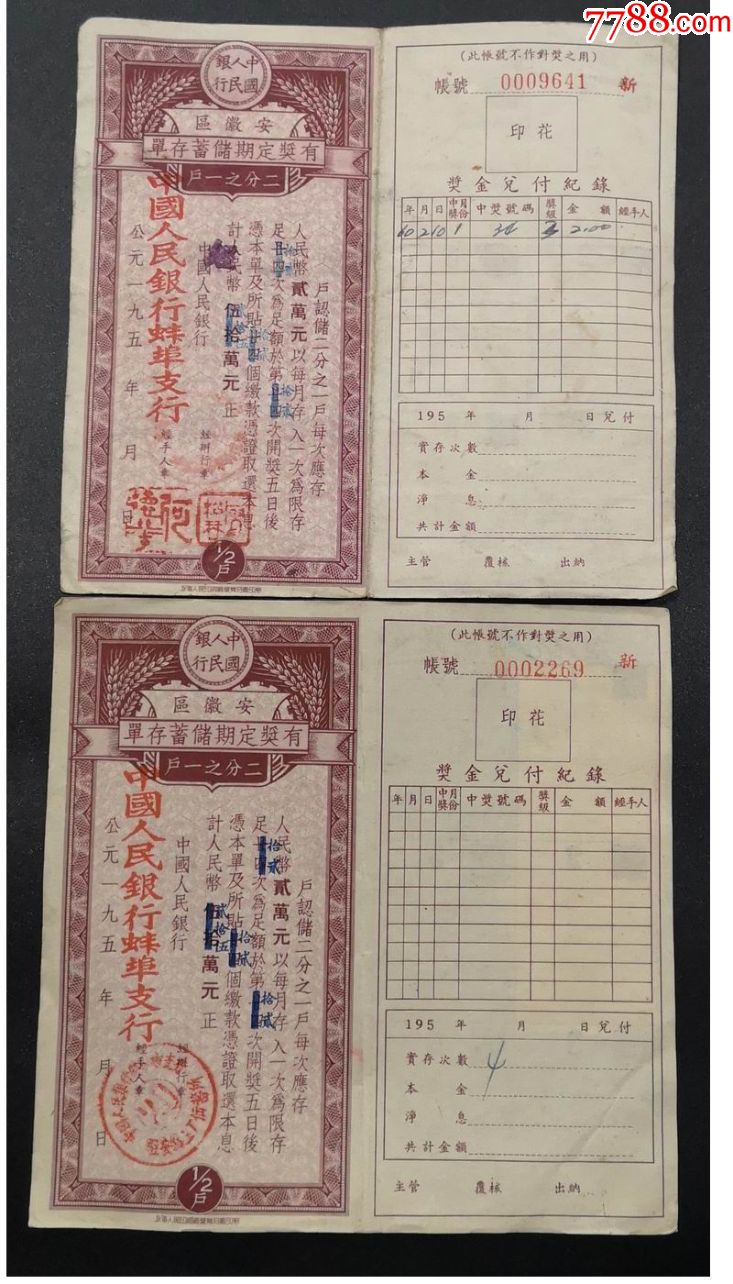 7788.com
中國人民銀行
安徽區
有獎定期儲蓄存單
二分之一戶
戶認儲二分之一戶每次應存
人民幣貳萬元以每月存入一次為限存
足拾貳次為足額於第拾貳次開獎五日後
憑本單及所貼拾貳個繳款憑證取還本息
計人民幣貳拾五萬元正
中國人民銀行
經辦行章
經手人章
中國人民銀行蚌埠支行
公元一九五 年 月 日
1/2戶
(此帳號不作對獎之用)
帳號 0009641 新
印花
獎金兌付紀錄
年 月 日 中獎月份 中獎號碼 獎級 金額 經手人
60 2 10 1 34 3 2.00
195 年 月 日兌付
實存次數
本金
淨息
共計金額
主管 覆核 出納
中國人民銀行
安徽區
有獎定期儲蓄存單
二分之一戶
戶認儲二分之一戶每次應存
人民幣貳萬元以每月存入一次為限存
足拾貳次為足額於第拾貳次開獎五日後
憑本單及所貼拾貳個繳款憑證取還本息
計人民幣貳拾五萬元正
中國人民銀行
經辦行章
經手人章
中國人民銀行蚌埠支行
公元一九五 年 月 日
1/2戶
(此帳號不作對獎之用)
帳號 0002269 新
印花
獎金兌付紀錄
年 月 日 中獎月份 中獎號碼 獎級 金額 經手人
195 年 月 日兌付
實存次數 4
本金
淨息
共計金額
主管 覆核 出納